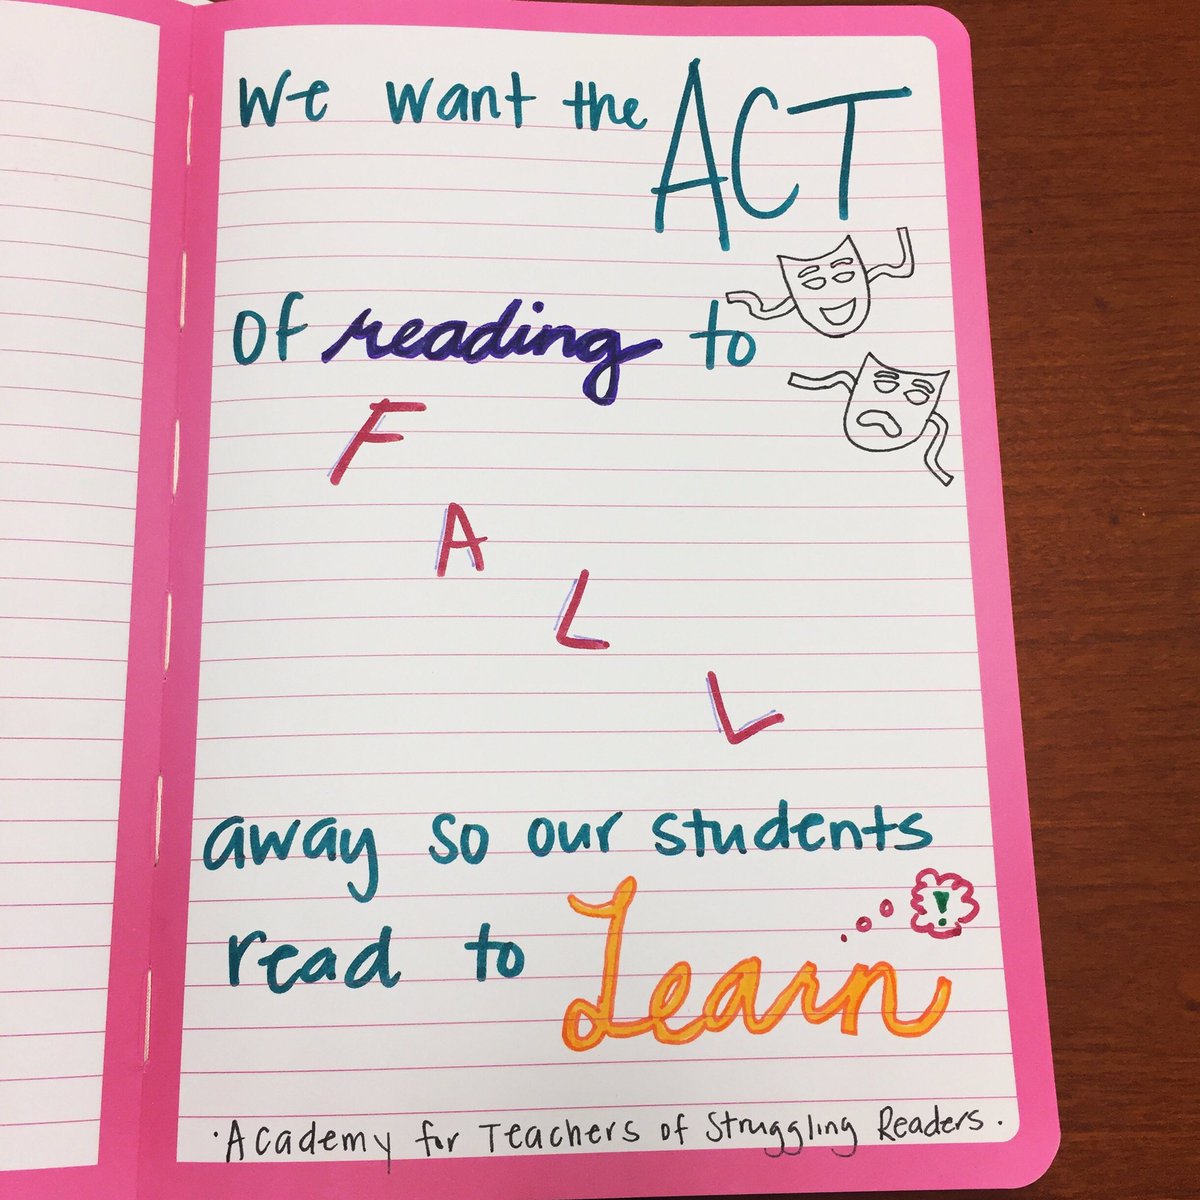 We want the ACT
of reading to
F
A
L
L
away so our students
read to Learn
!
·Academy for Teachers of Struggling Readers.